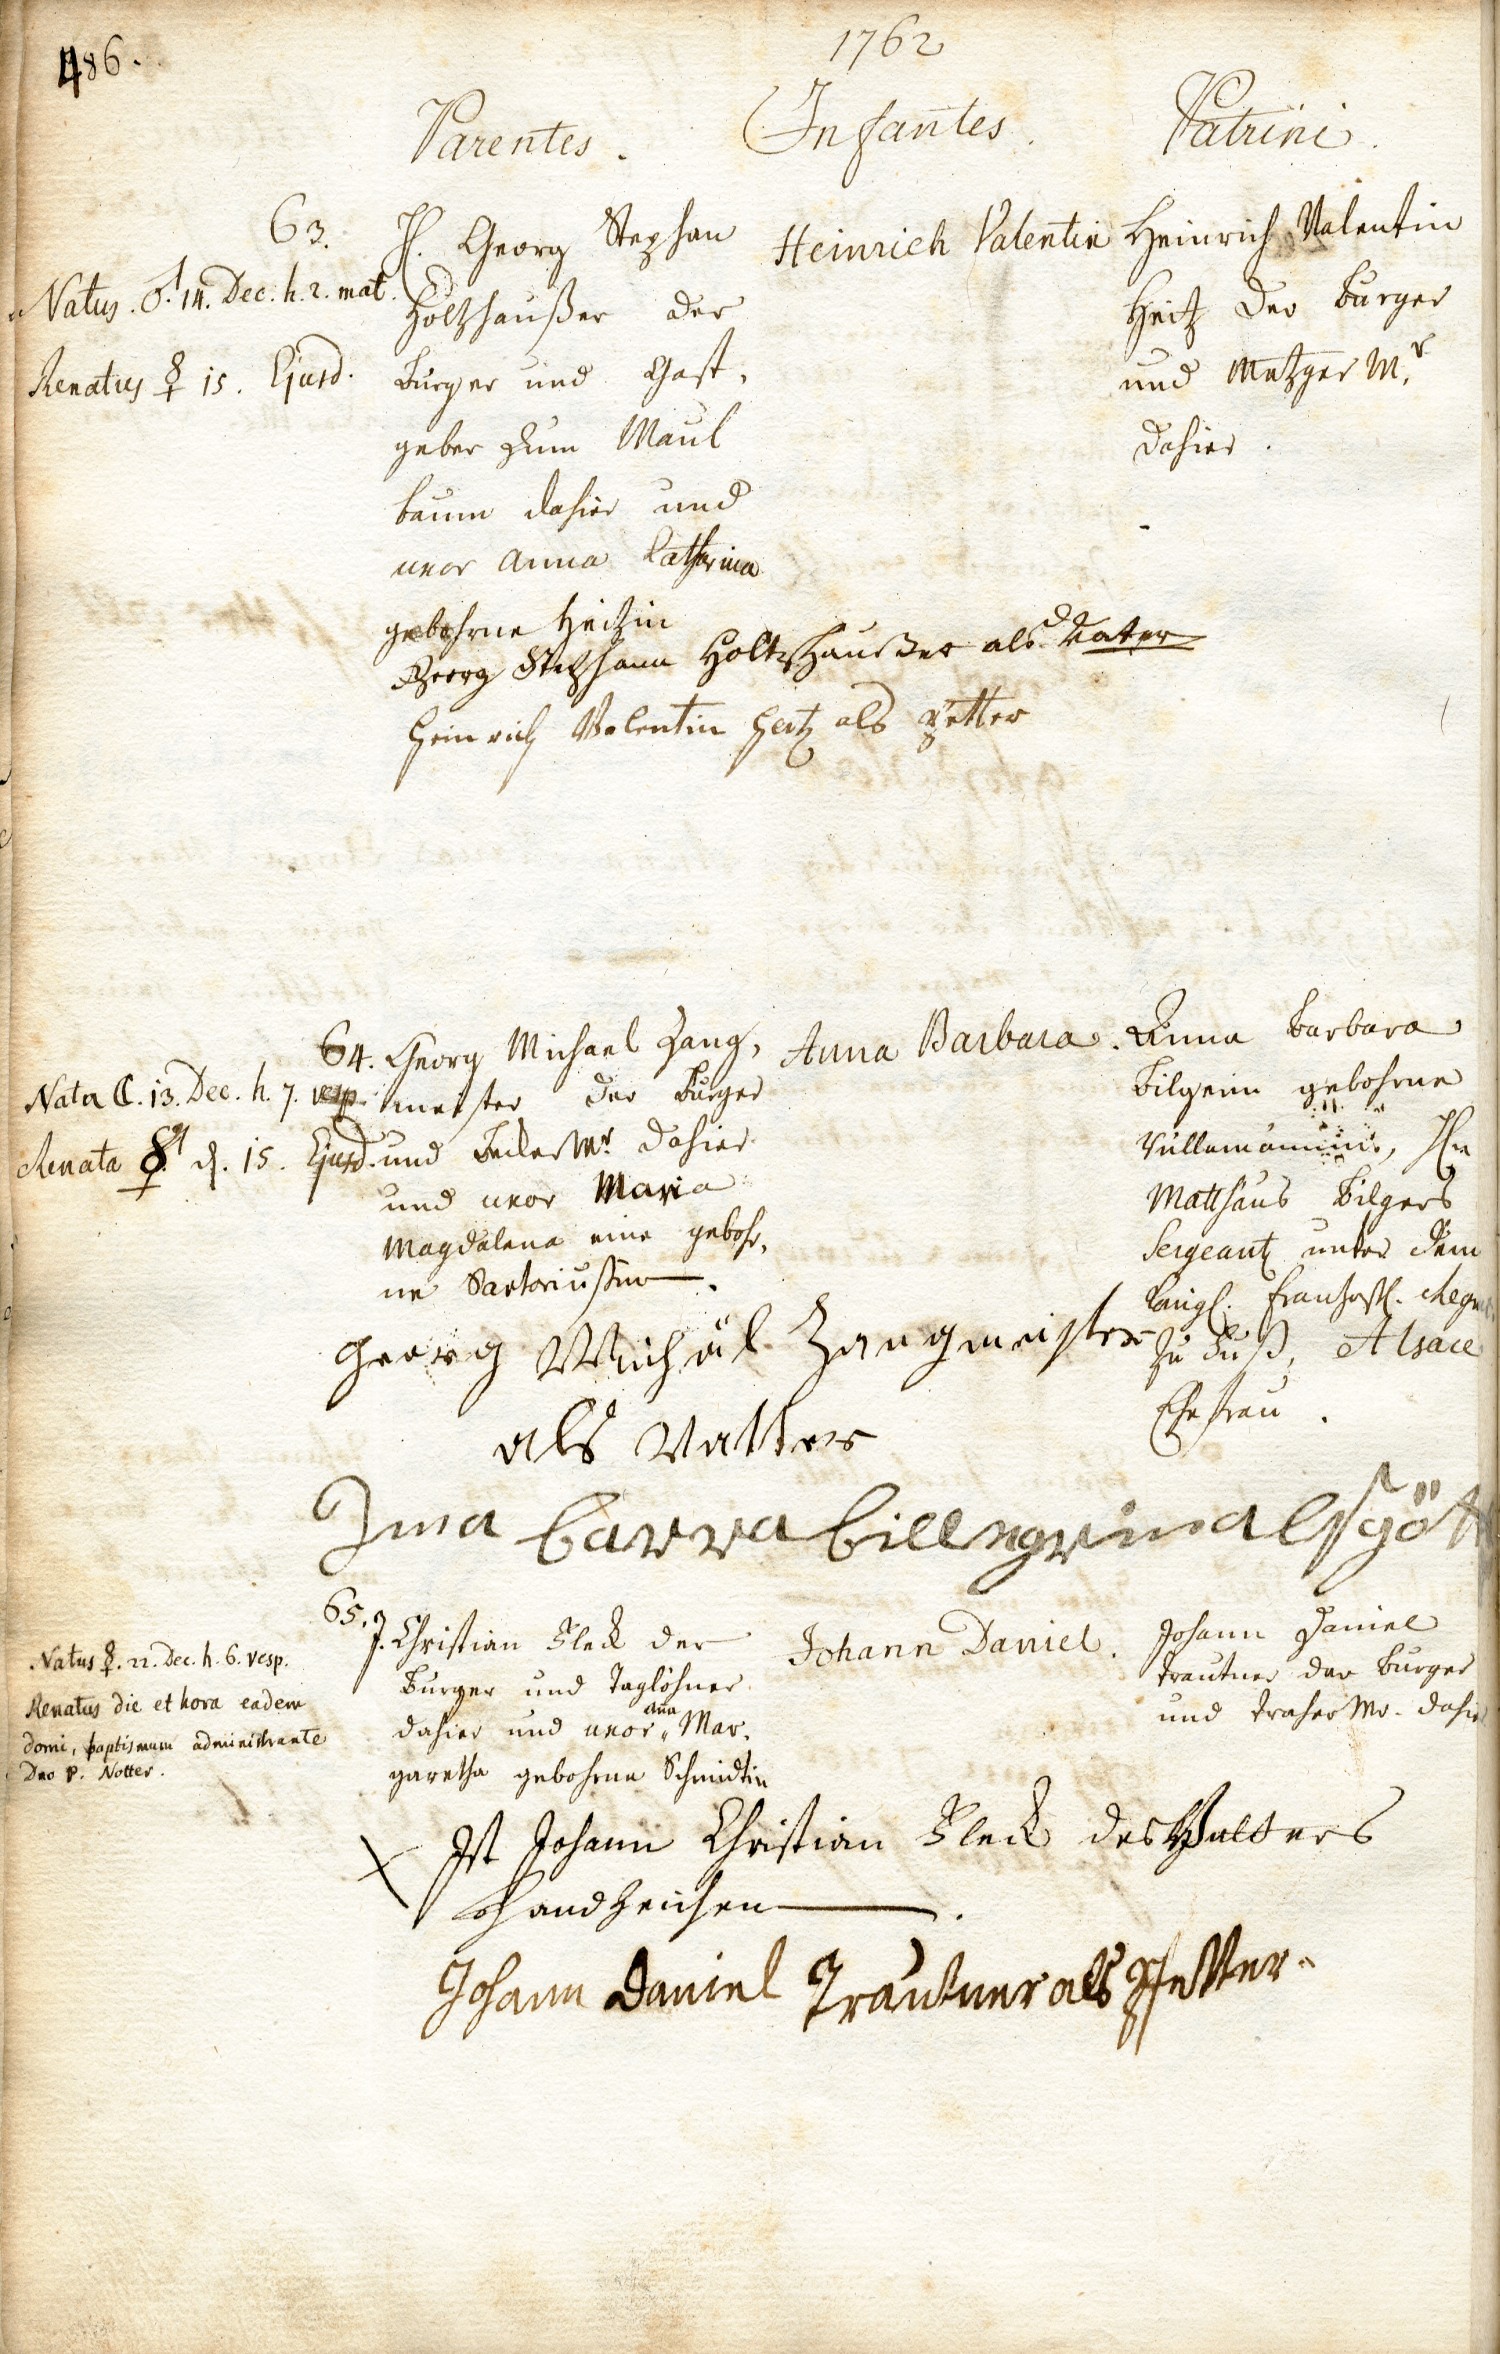 486.
1762
Parentes. Infantes. Patrini.
63.
Natus. ♂. 14. Dec. h. 2. mat.
Renatus ☿ 15. Ejusd.
H. Georg Stephan
Holtzhaußer der
Burger und Gast,
geber zum Maul
baum dahier und
uxor Anna Catharina
gebohrne Heitzin
Heinrich Valentin
Heinrich Valentin
Heitz der Burger
und Metzger Mr.
dahier.
Georg Stephann Holtzhaußer als Vater
Heinrich Valentin Heitz als Petter
64.
Nata ☾. 13. Dec. h. 7. vesp.
Renata ☿ d. 15. Ejusd.
Georg Michael Zang,
meister der Burger
und Becker Mr. dahier
und uxor Maria
Magdalena eine gebohr,
ne Sartoriusin.
Anna Barbara.
Anna Barbara
Bilgerin gebohrne
Matthäus Bilgers
Sergeant unter dem
Königl. Frantzösl.
zu Fuß, Alsace
Ehefrau.
Georg Michäl Zangmeister
als Vatter
65.
Natus ☿. 22. Dec. h. 6. vesp.
Renatus die et hora eadem
domi, baptismum administrante
Dno P. Notter.
J. Christian Fleck der
Burger und Taglöhner
dahier und uxor Anna Mar,
garetha gebohrne Schmidtin
Johann Daniel.
Johann Daniel
Trautner der Burger
und Dreher Mr. dahier
X Ist Johann Christian Fleck des Vatters
Handzeichen.
Johann Daniel Trautner als Pfetter.